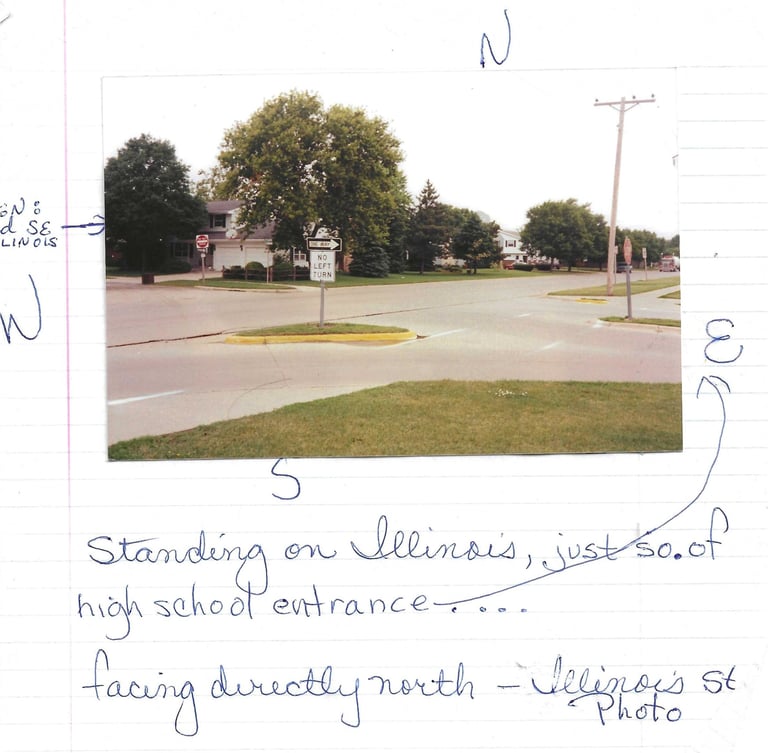 N
GN:
d SE
LLINOIS
W
ONE WAY
NO
LEFT
TURN
E
S
Standing on Illinois, just so. of
high school entrance.....
facing directly north - Illinois St
Photo